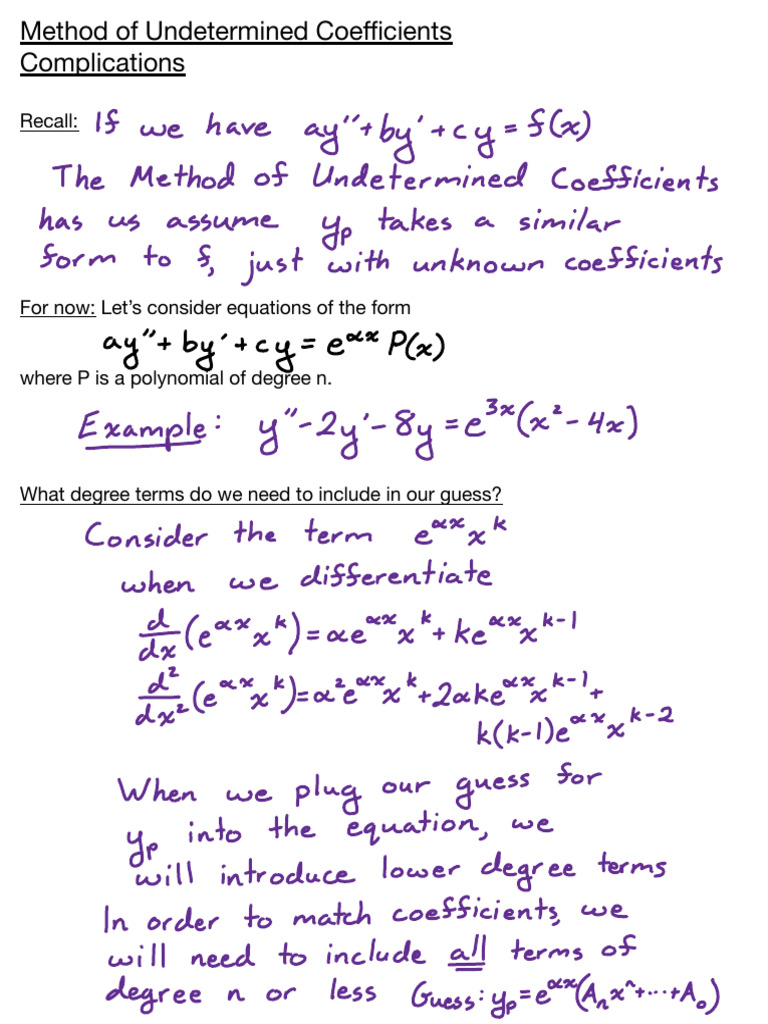 Method of Undetermined Coefficients
Complications
Recall: If we have ay''+by'+cy=f(x)
The Method of Undetermined Coefficients
has us assume yₚ takes a similar
form to f, just with unknown coefficients
For now: Let's consider equations of the form
ay''+by'+cy=e^{αx} P(x)
where P is a polynomial of degree n.
Example: y''-2y'-8y=e^{3x}(x²-4x)
What degree terms do we need to include in our guess?
Consider the term e^{αx}x^k
when we differentiate
d/dx(e^{αx}x^k)=αe^{αx}x^k+ke^{αx}x^{k-1}
d²/dx²(e^{αx}x^k)=α²e^{αx}x^k+2αke^{αx}x^{k-1}+
k(k-1)e^{αx}x^{k-2}
When we plug our guess for
yₚ into the equation, we
will introduce lower degree terms
In order to match coefficients, we
will need to include all terms of
degree n or less Guess: yₚ=e^{αx}(Aₙxⁿ+...+A₀)